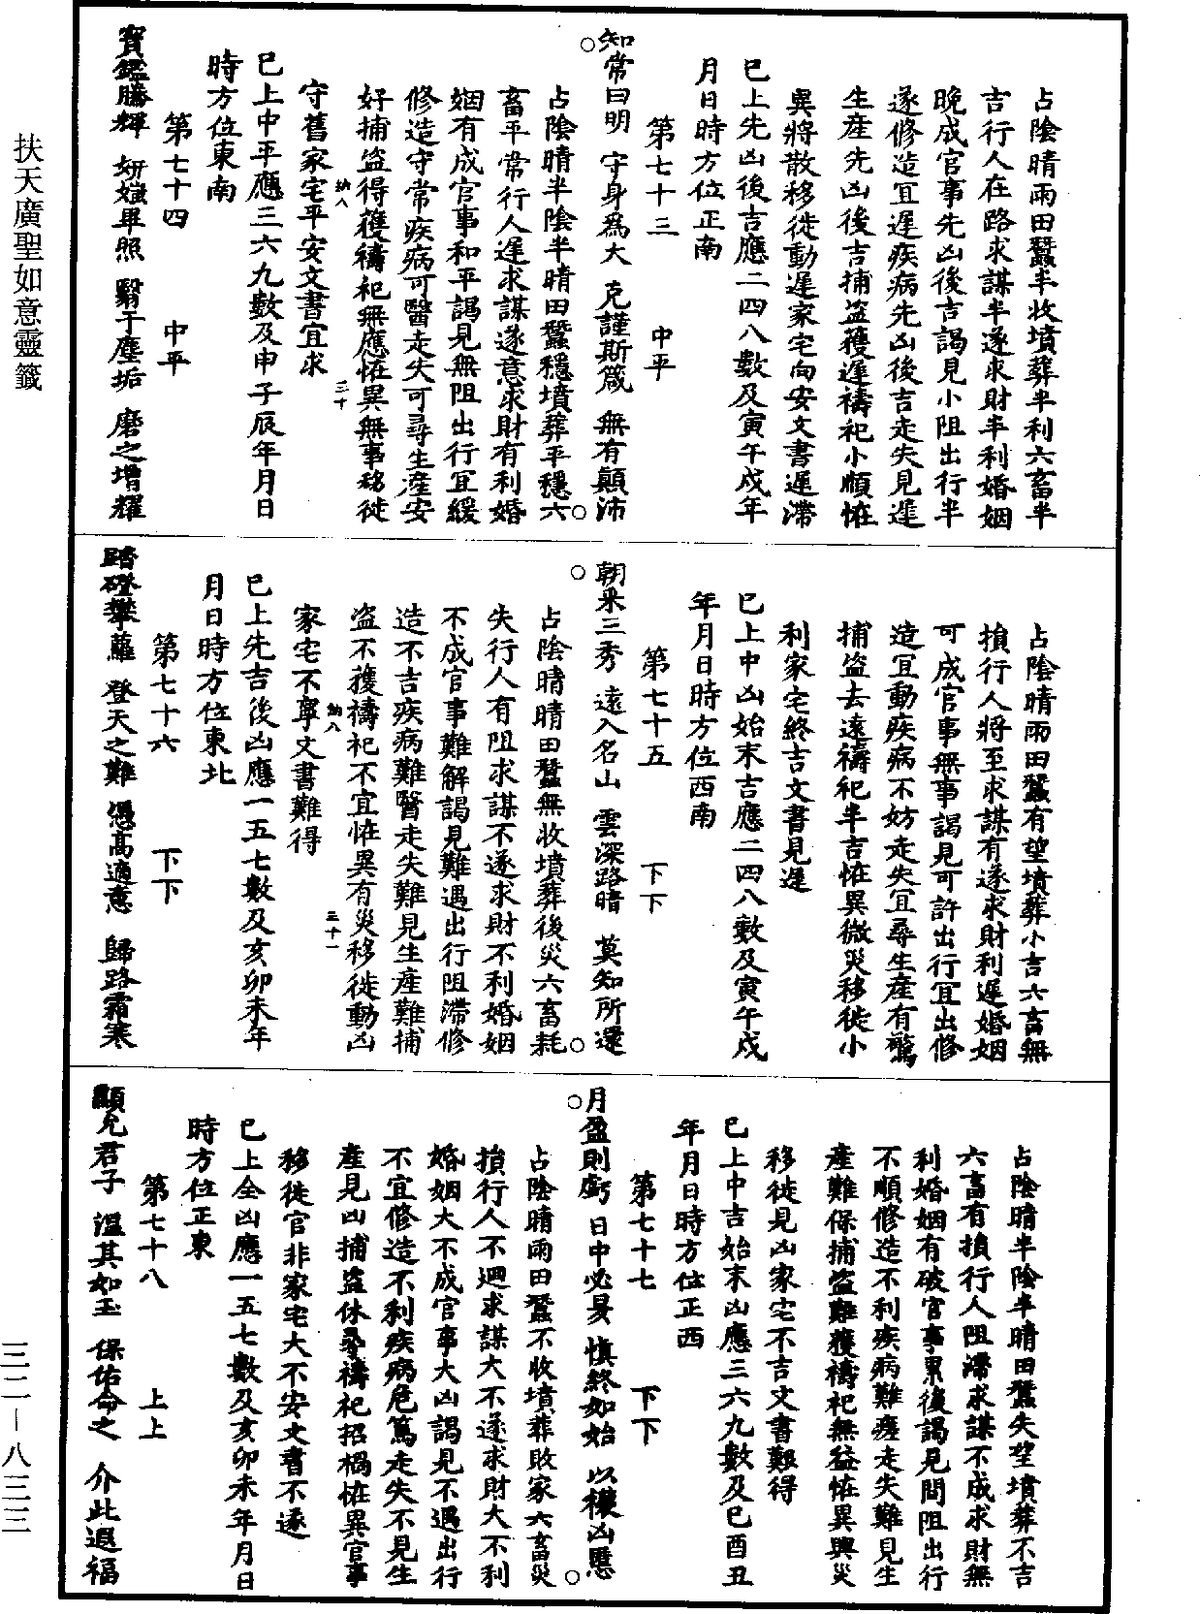 占陰晴雨田蠶半收墳葬半利六畜半
吉行人在路求謀半遂求財半利婚姻
晚成官事先凶後吉謁見小阻出行半
遂修造宜遲疾病先凶後吉走失見遲
生產先凶後吉捕盜獲遲禱祀小順恠
異將散移徙動遲家宅向安文書遲滯
巳上先凶後吉應二四八數及寅午戌年
月日時方位正南
第七十三　中平
知常曰明　守身為大　克謹斯箴　無有顛沛
占陰晴半陰半晴田蠶穩墳葬平穩六
畜平常行人遲求謀遂意求財有利婚
姻有成官事和平謁見無阻出行宜緩
修造守常疾病可醫走失可尋生產安
好捕盜得獲禱祀無應恠異無事移徙
納八　三十
守舊家宅平安文書宜求
巳上中平應三六九數及申子辰年月日
時方位東南
第七十四　中平
寶鑑騰輝　妍媸畢照　翳于塵垢　磨之增耀
占陰晴雨田蠶有望墳葬小吉六畜無
損行人將至求謀有遂求財利遲婚姻
可成官事無事謁見可許出行宜出修
造宜動疾病不妨走失宜尋生產有驚
捕盜去遠禱祀半吉恠異微災移徙小
利家宅終吉文書見遲
巳上中凶始末吉應二四八數及寅午戌
年月日時方位西南
第七十五　下下
朝采三秀　遠入名山　雲深路暗　莫知所還
占陰晴晴田蠶無收墳葬後災六畜耗
失行人有阻求謀不遂求財不利婚姻
不成官事難解謁見難遇出行阻滯修
造不吉疾病難醫走失難見生產難捕
盜不獲禱祀不宜恠異有災移徙動凶
納八　三十一
家宅不寧文書難得
巳上先吉後凶應一五七數及亥卯未年
月日時方位東北
第七十六　下下
踏磴攀蘿　登天之難　憑高適意　歸路霜寒
占陰晴半陰半晴田蠶失望墳葬不吉
六畜有損行人阻滯求謀不成求財無
利婚姻有破官事累後謁見問阻出行
不順修造不利疾病難瘥走失難見生
產難保捕盜難獲禱祀無益恠異興災
移徙見凶家宅不吉文書艱得
巳上中吉始末凶應三六九數及巳酉丑
年月日時方位正西
第七十七　下下
月盈則虧　日中必昃　慎終如始　以禳凶慝
占陰晴雨田蠶不收墳葬敗家六畜災
損行人不迴求謀大不遂求財大不利
婚姻大不成官事大凶謁見不遇出行
不宜修造不利疾病危篤走失不見生
產見凶捕盜休尋禱祀招禍恠異官事
移徙官非家宅大不安文書不遂
巳上全凶應一五七數及亥卯未年月日
時方位正東
第七十八　上上
顯允君子　溫其如玉　保佑命之　介此遐福
扶天廣聖如意靈籤
三二—八三三